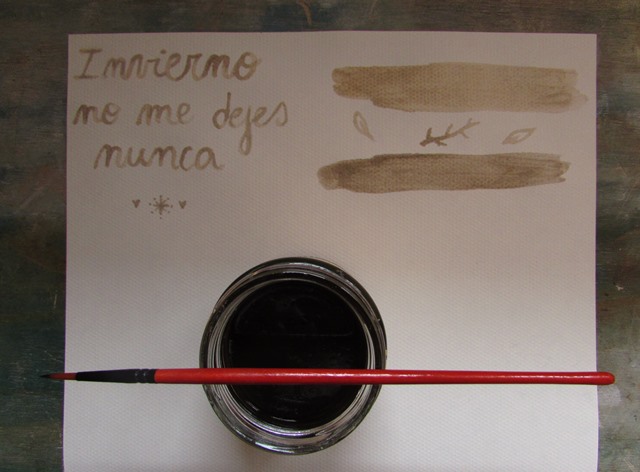 Invierno
no me dejes
nunca